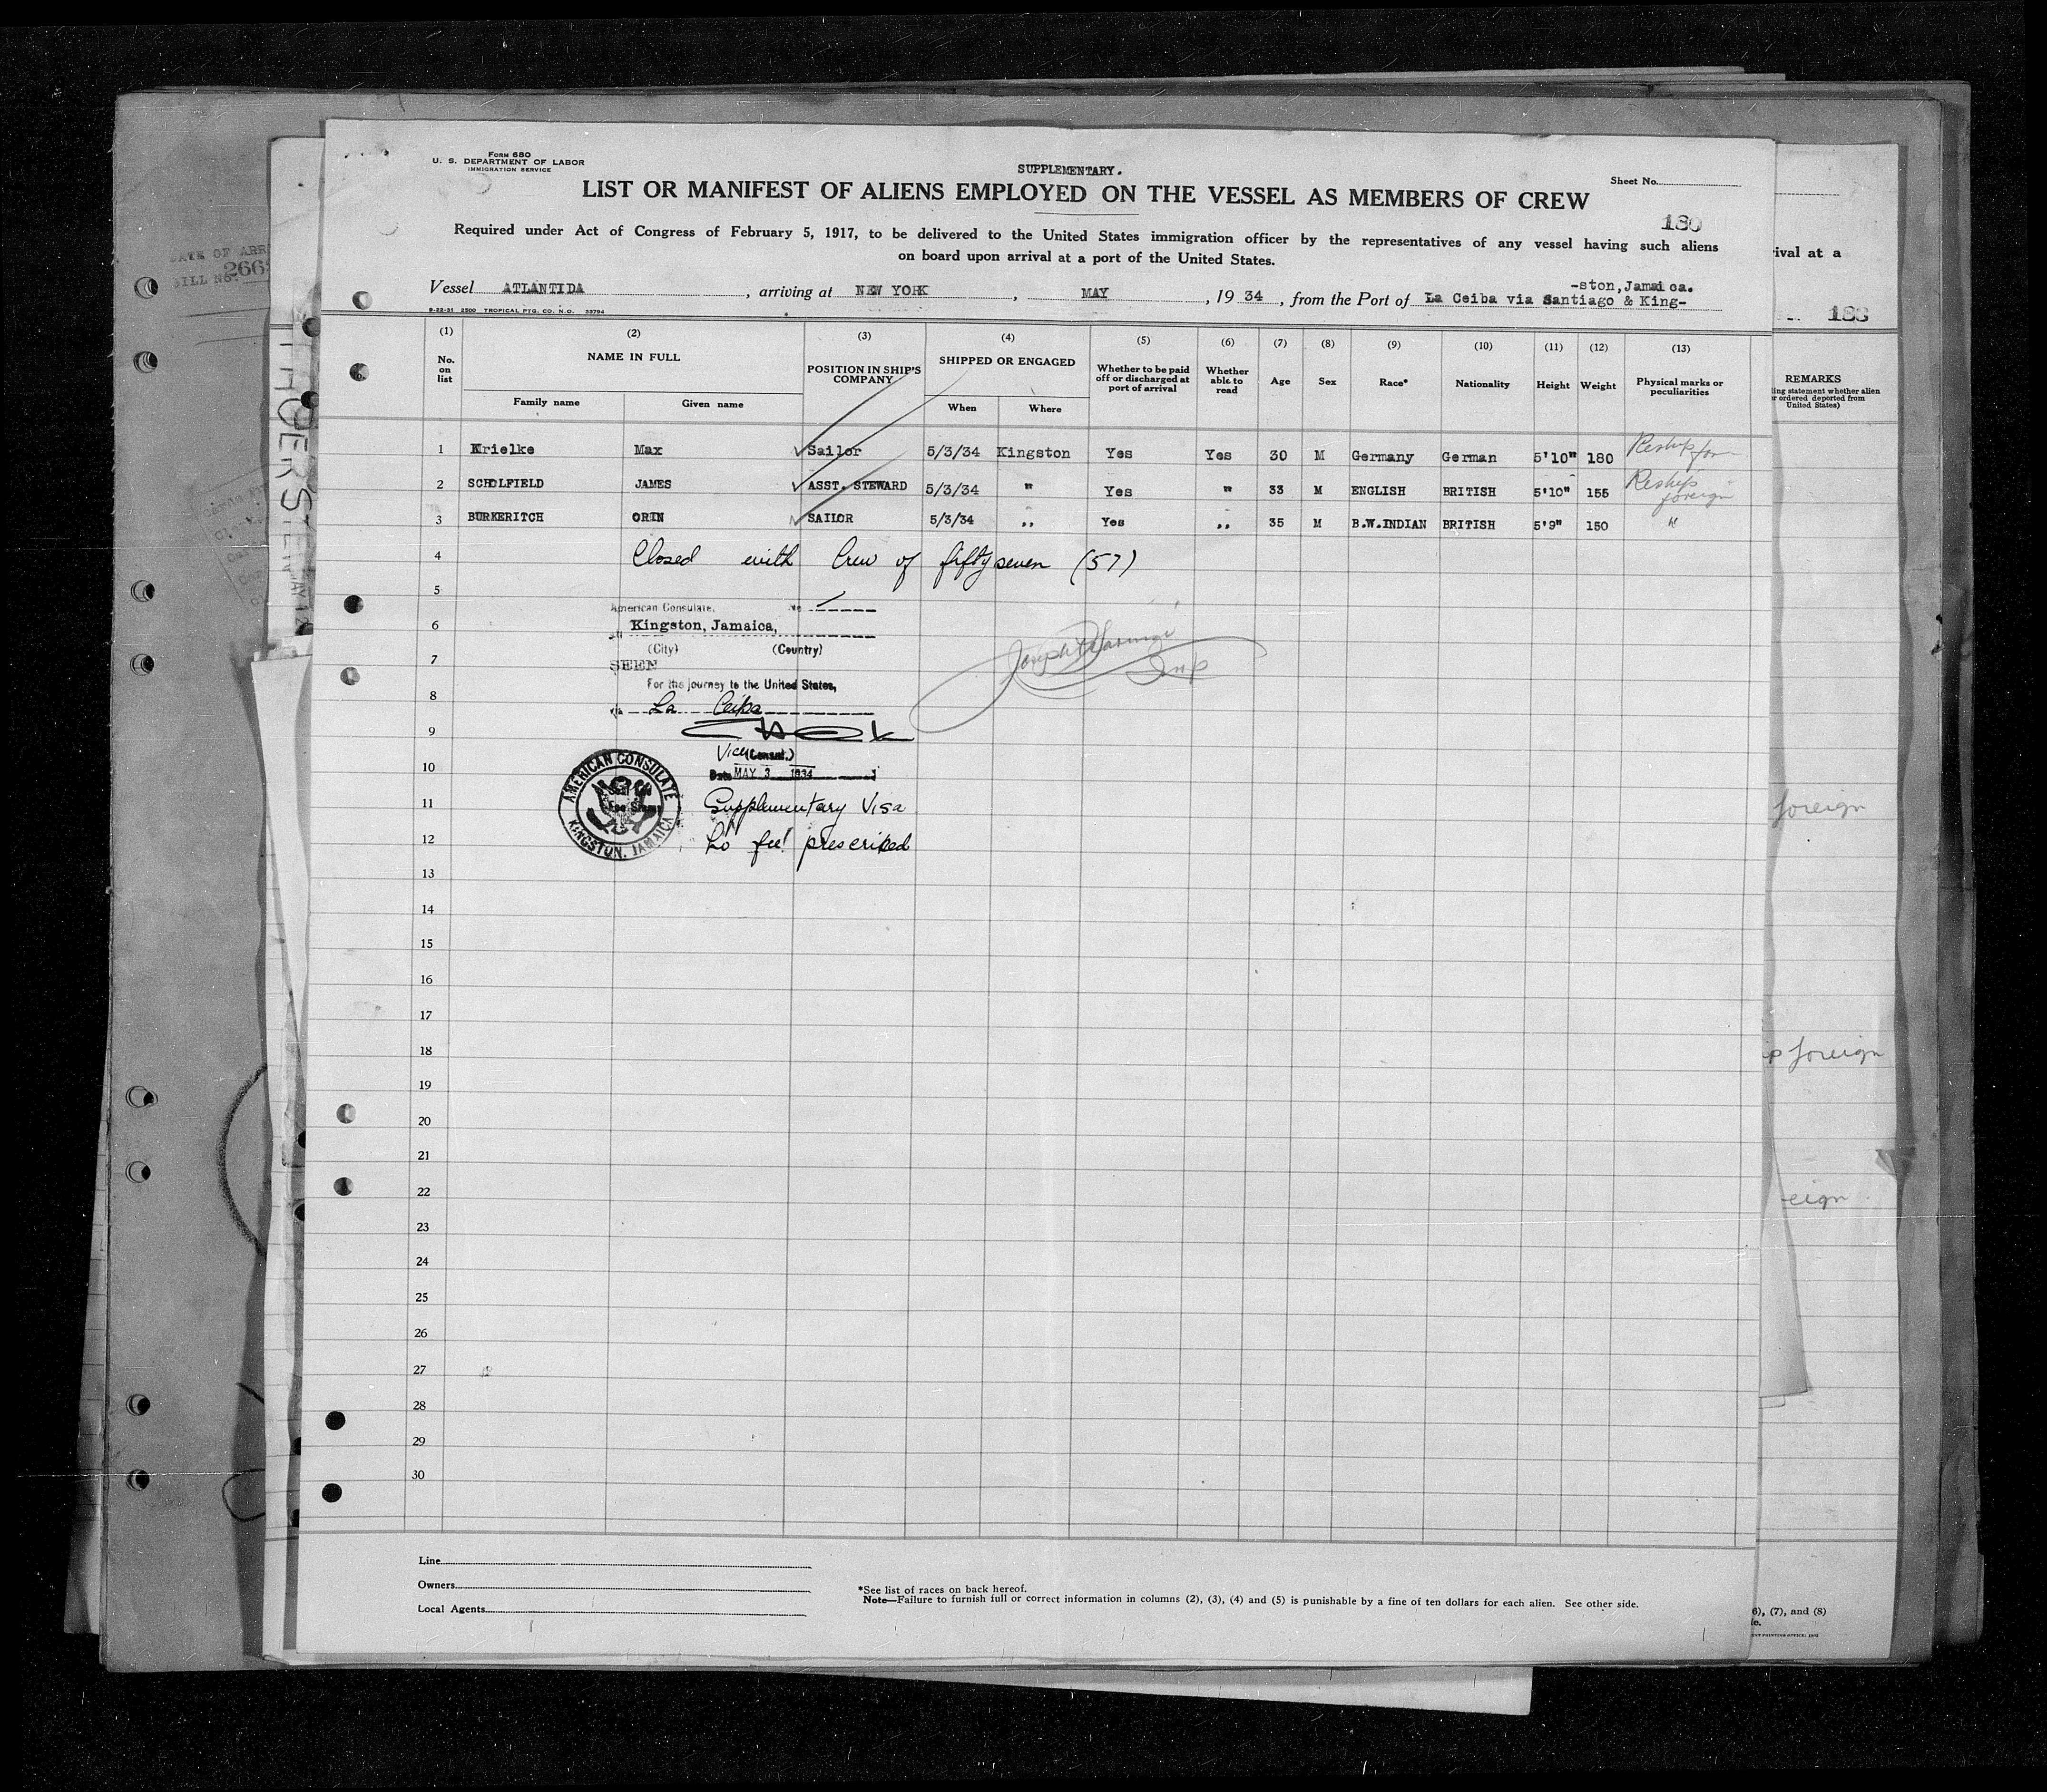 Form 680
U. S. DEPARTMENT OF LABOR
IMMIGRATION SERVICE
SUPPLEMENTARY.
Sheet No.
LIST OR MANIFEST OF ALIENS EMPLOYED ON THE VESSEL AS MEMBERS OF CREW
180
Required under Act of Congress of February 5, 1917, to be delivered to the United States immigration officer by the representatives of any vessel having such aliens
on board upon arrival at a port of the United States.
-ston, Jamaica.
Vessel ATLANTIDA, arriving at NEW YORK, MAY, 1934, from the Port of La Ceiba via Santiago & King-
9-22-31 2500 TROPICAL PTG. CO. N.O. 33794
(1) (2) (3) (4) (5) (6) (7) (8) (9) (10) (11) (12) (13)
No. on list NAME IN FULL POSITION IN SHIP'S COMPANY SHIPPED OR ENGAGED Whether to be paid off or discharged at port of arrival Whether able to read Age Sex Race* Nationality Height Weight Physical marks or peculiarities
Family name Given name When Where
1 Krielke Max Sailor 5/3/34 Kingston Yes Yes 30 M Germany German 5'10" 180 Reship for
2 SCHOLFIELD JAMES ASST. STEWARD 5/3/34 " Yes " 33 M ENGLISH BRITISH 5'10" 155 Reship foreign
3 BURKERITCH ORIN SAILOR 5/3/34 ,, Yes ,, 35 M B.W.INDIAN BRITISH 5'9" 150 "
4 Closed with Crew of fifty seven (57)
5
American Consulate, No
6 Kingston, Jamaica,
(City) (Country)
7
SEEN
For the journey to the United States,
8
via La Ceiba
9
Vice (Consul.)
10
Date MAY 3 1934
AMERICAN CONSULATE
KINGSTON, JAMAICA
11 Supplementary Visa
12 No fee prescribed
13
14
15
16
17
18
19
20
21
22
23
24
25
26
27
28
29
30
Line
Owners
Local Agents
*See list of races on back hereof.
Note—Failure to furnish full or correct information in columns (2), (3), (4) and (5) is punishable by a fine of ten dollars for each alien. See other side.
DATE OF ARR
BILL NO.
266
rival at a
183
REMARKS
ing statement whether alien
r ordered deported from
United States)
foreign
ip foreign
eign
6), (7), and (8)